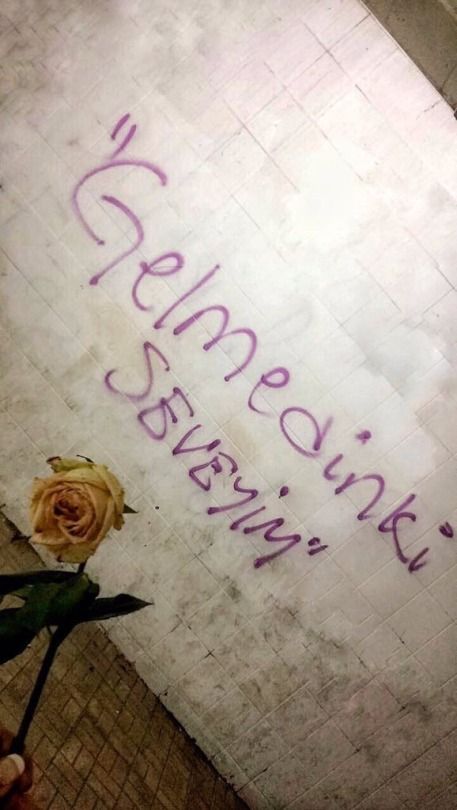 "Gelmedinki
SEVEYiM"